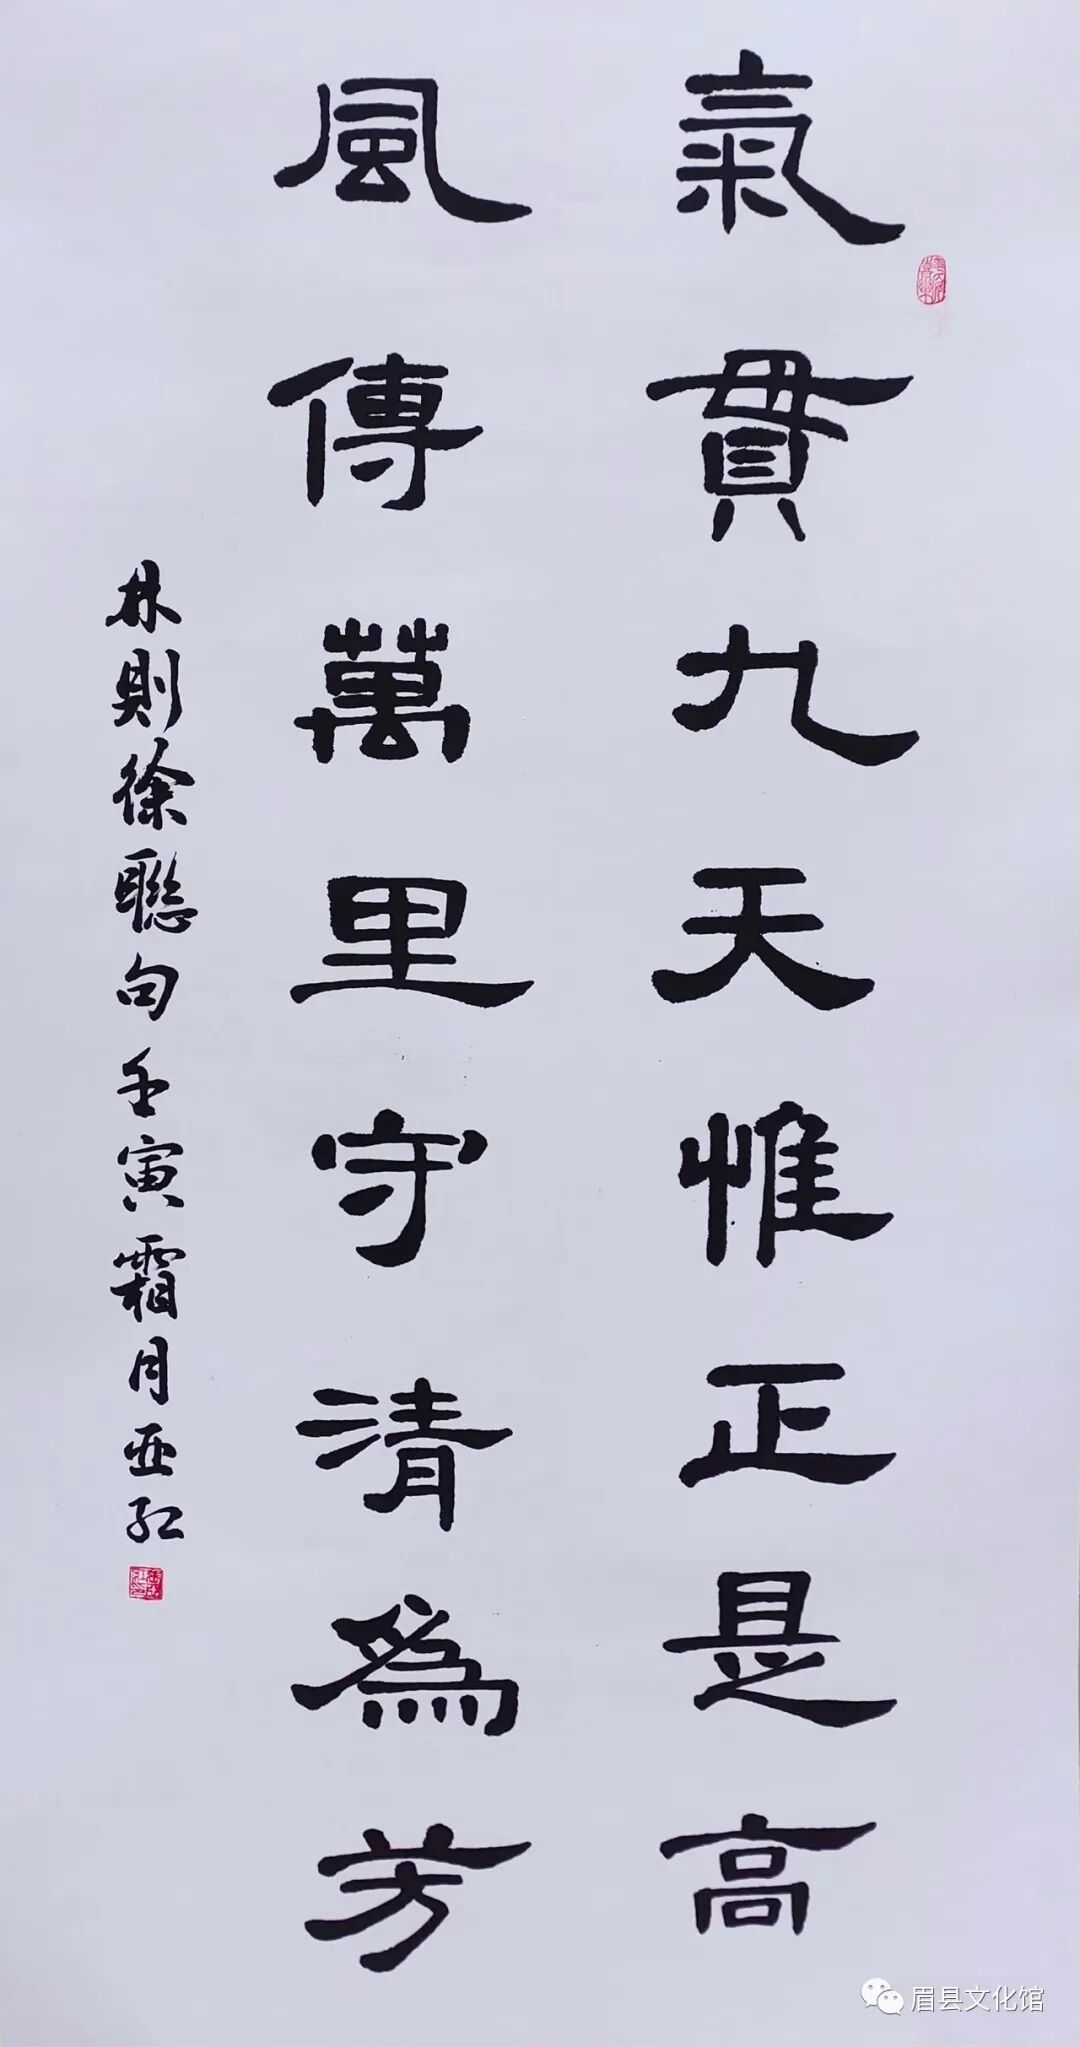 氣貫九天惟正是高
風傳萬里守清為芳
林則徐聯句壬寅霜月亚红
眉县文化馆